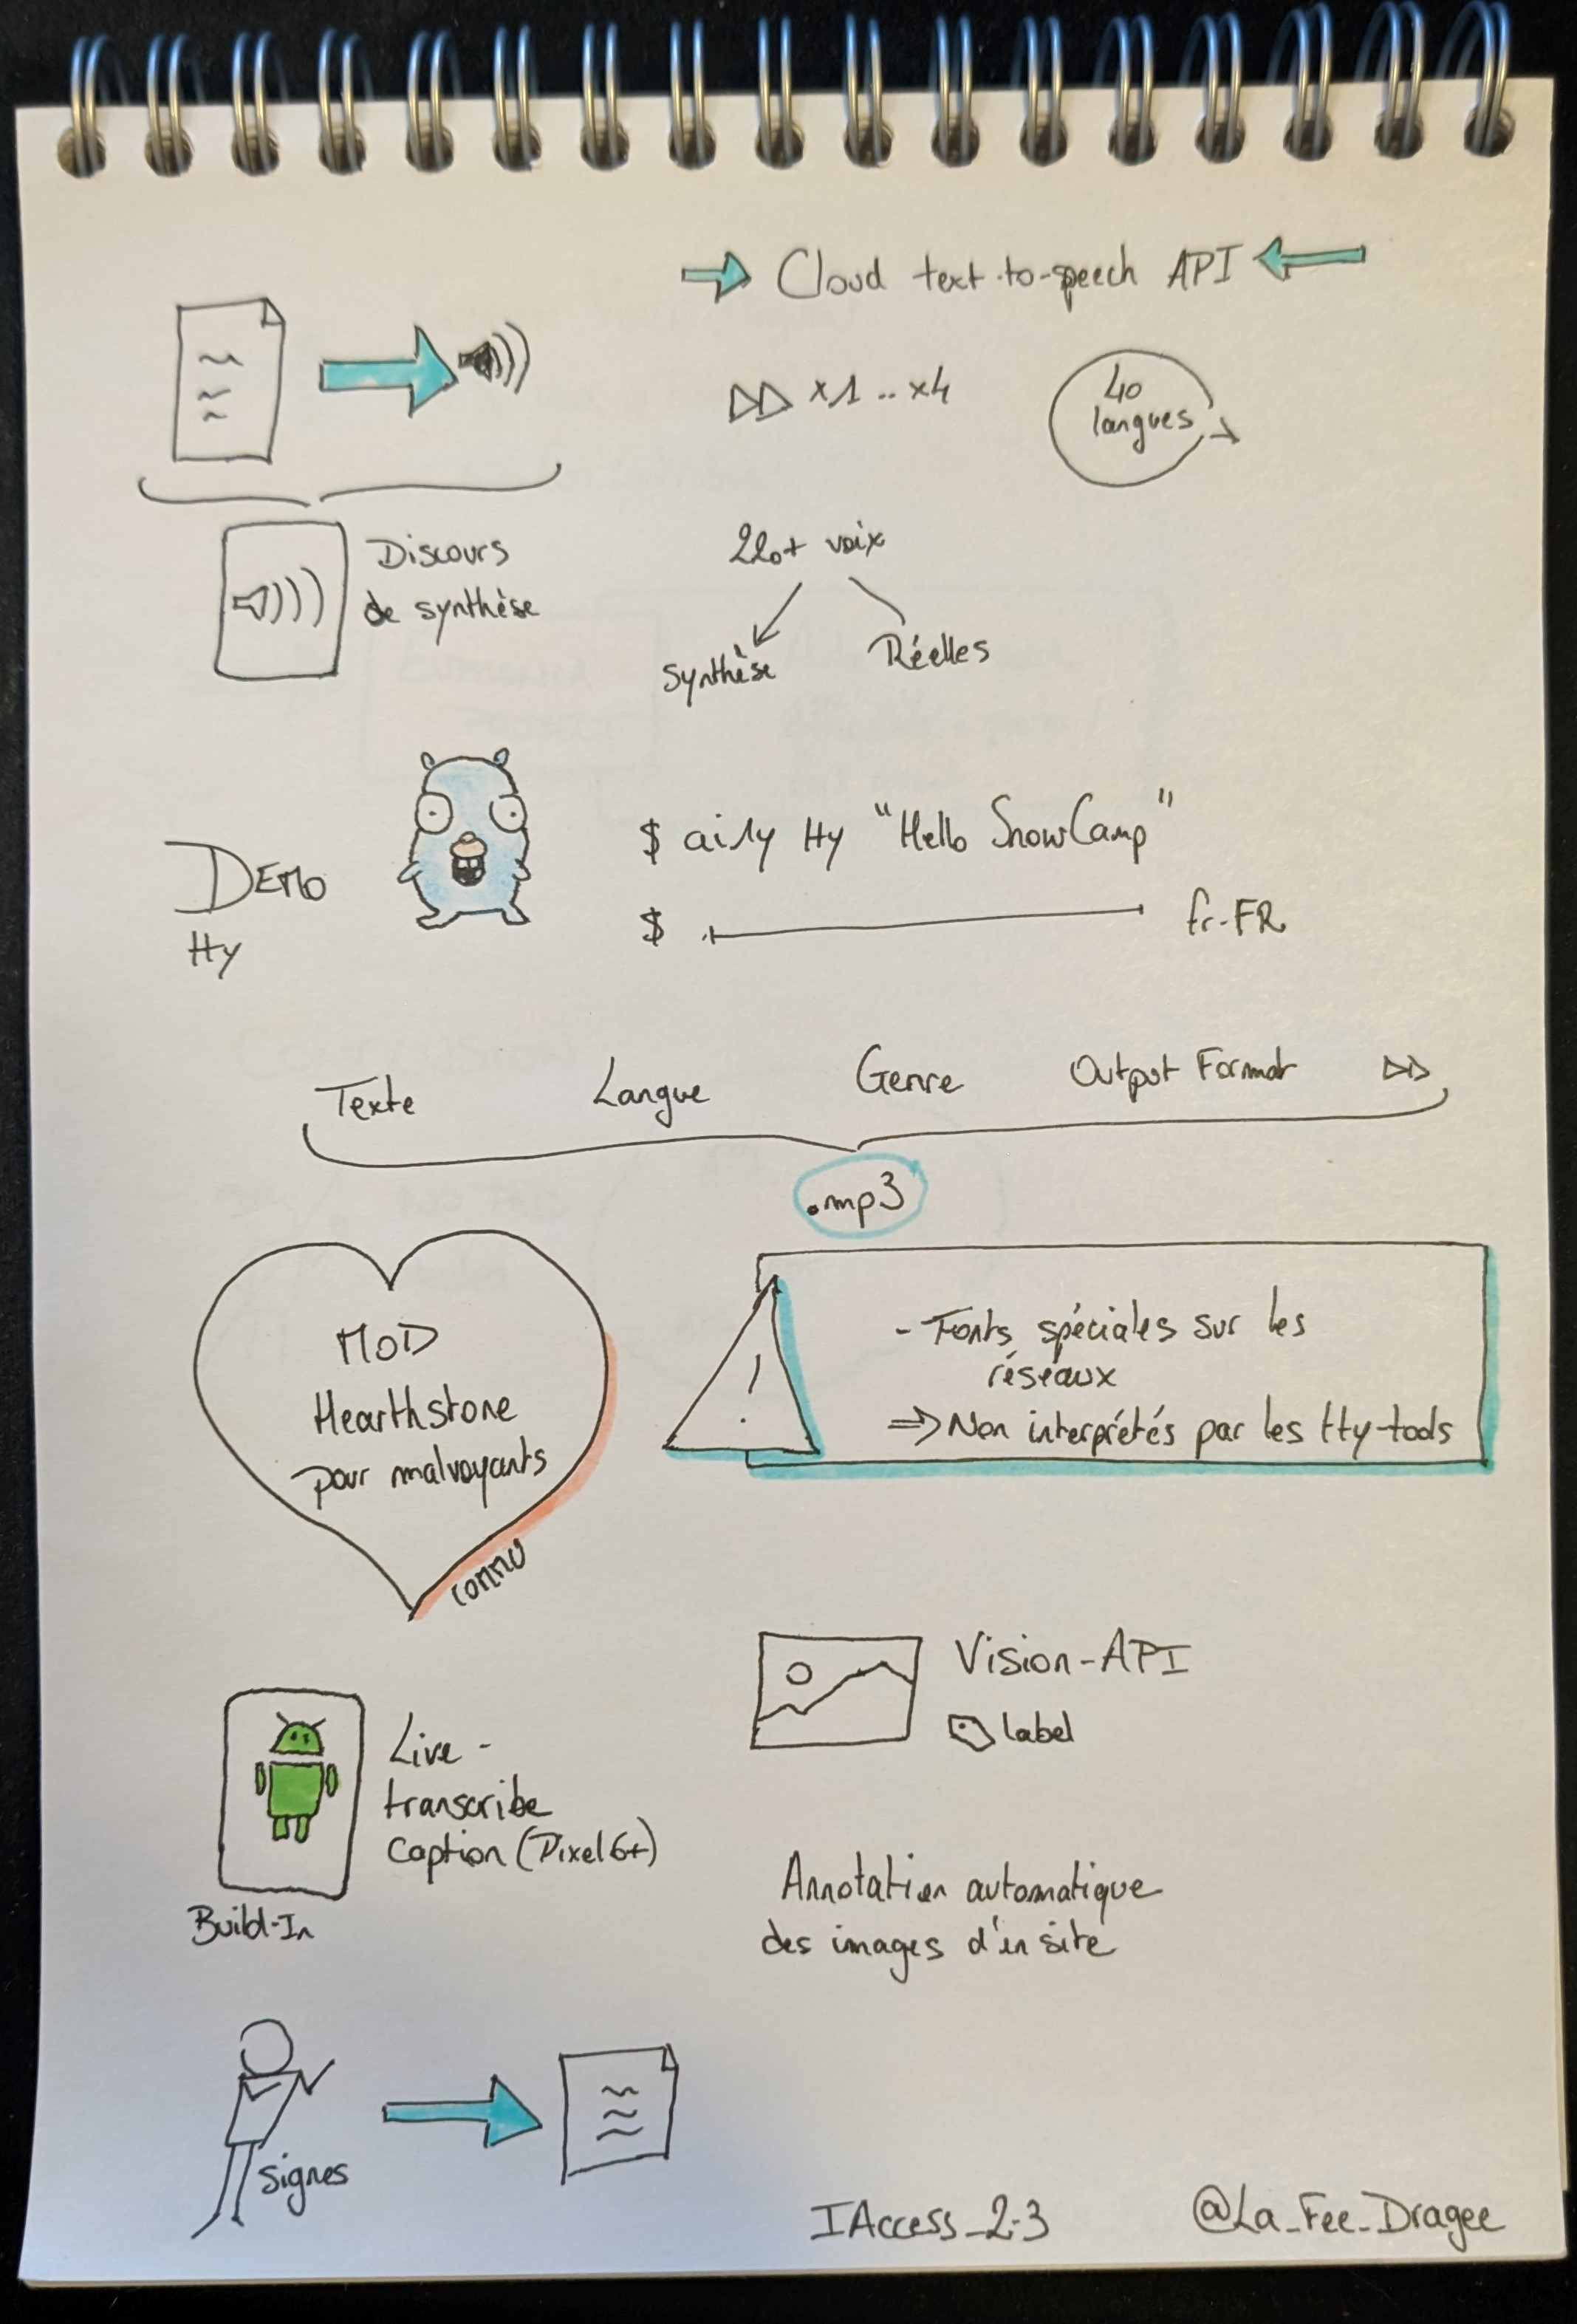 Cloud text-to-speech API
x1 .. x4
40
langues
Discours
de synthèse
220+ voix
Synthèse
Réelles
DEMO
tty
$ ai11y tty "Hello SnowCamp"
$ fr-FR
Texte Langue Genre Output Format
.mp3
MOD
Hearthstone
pour malvoyants
connu
!
- Fonts spéciales sur les
réseaux
=> Non interprétés par les tty-tools
Vision-API
label
Live-
transcribe
Caption (Pixel 6+)
Build-In
Annotation automatique
des images d'un site
signes
IAccess_2.3
@La_Fee_Dragee